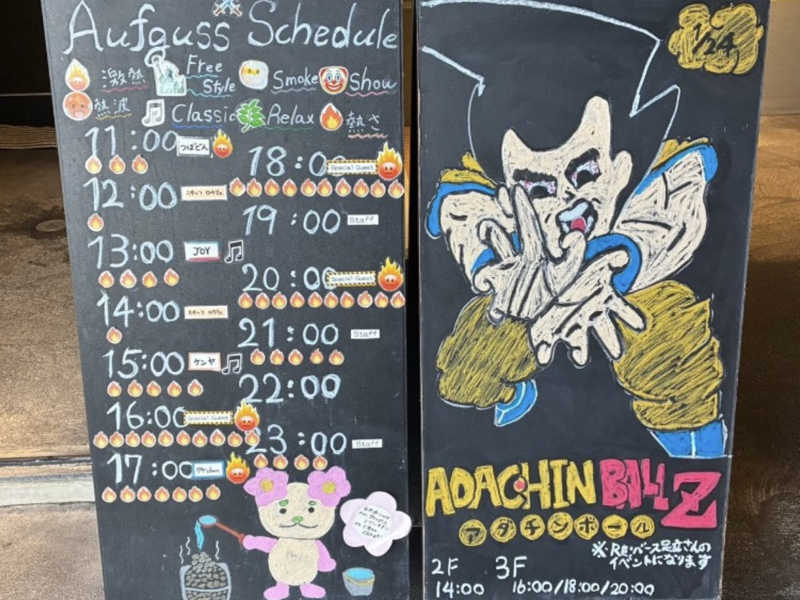 Aufguss Schedule
激熱 Free Style Smoke Show
熱波 Classic Relax 熱さ
11:00 つぼどん
12:00
13:00 JOY
14:00
15:00 ケンヤ
16:00 Special Guest
17:00
18:00 Special Guest
19:00 Staff
20:00 Special Guest
21:00 Staff
22:00
23:00 Staff
1/24
ADACHIN BALL Z
アダチンボール
※Re:バース足立さんの
イベントになります
2F 3F
14:00 16:00/18:00/20:00